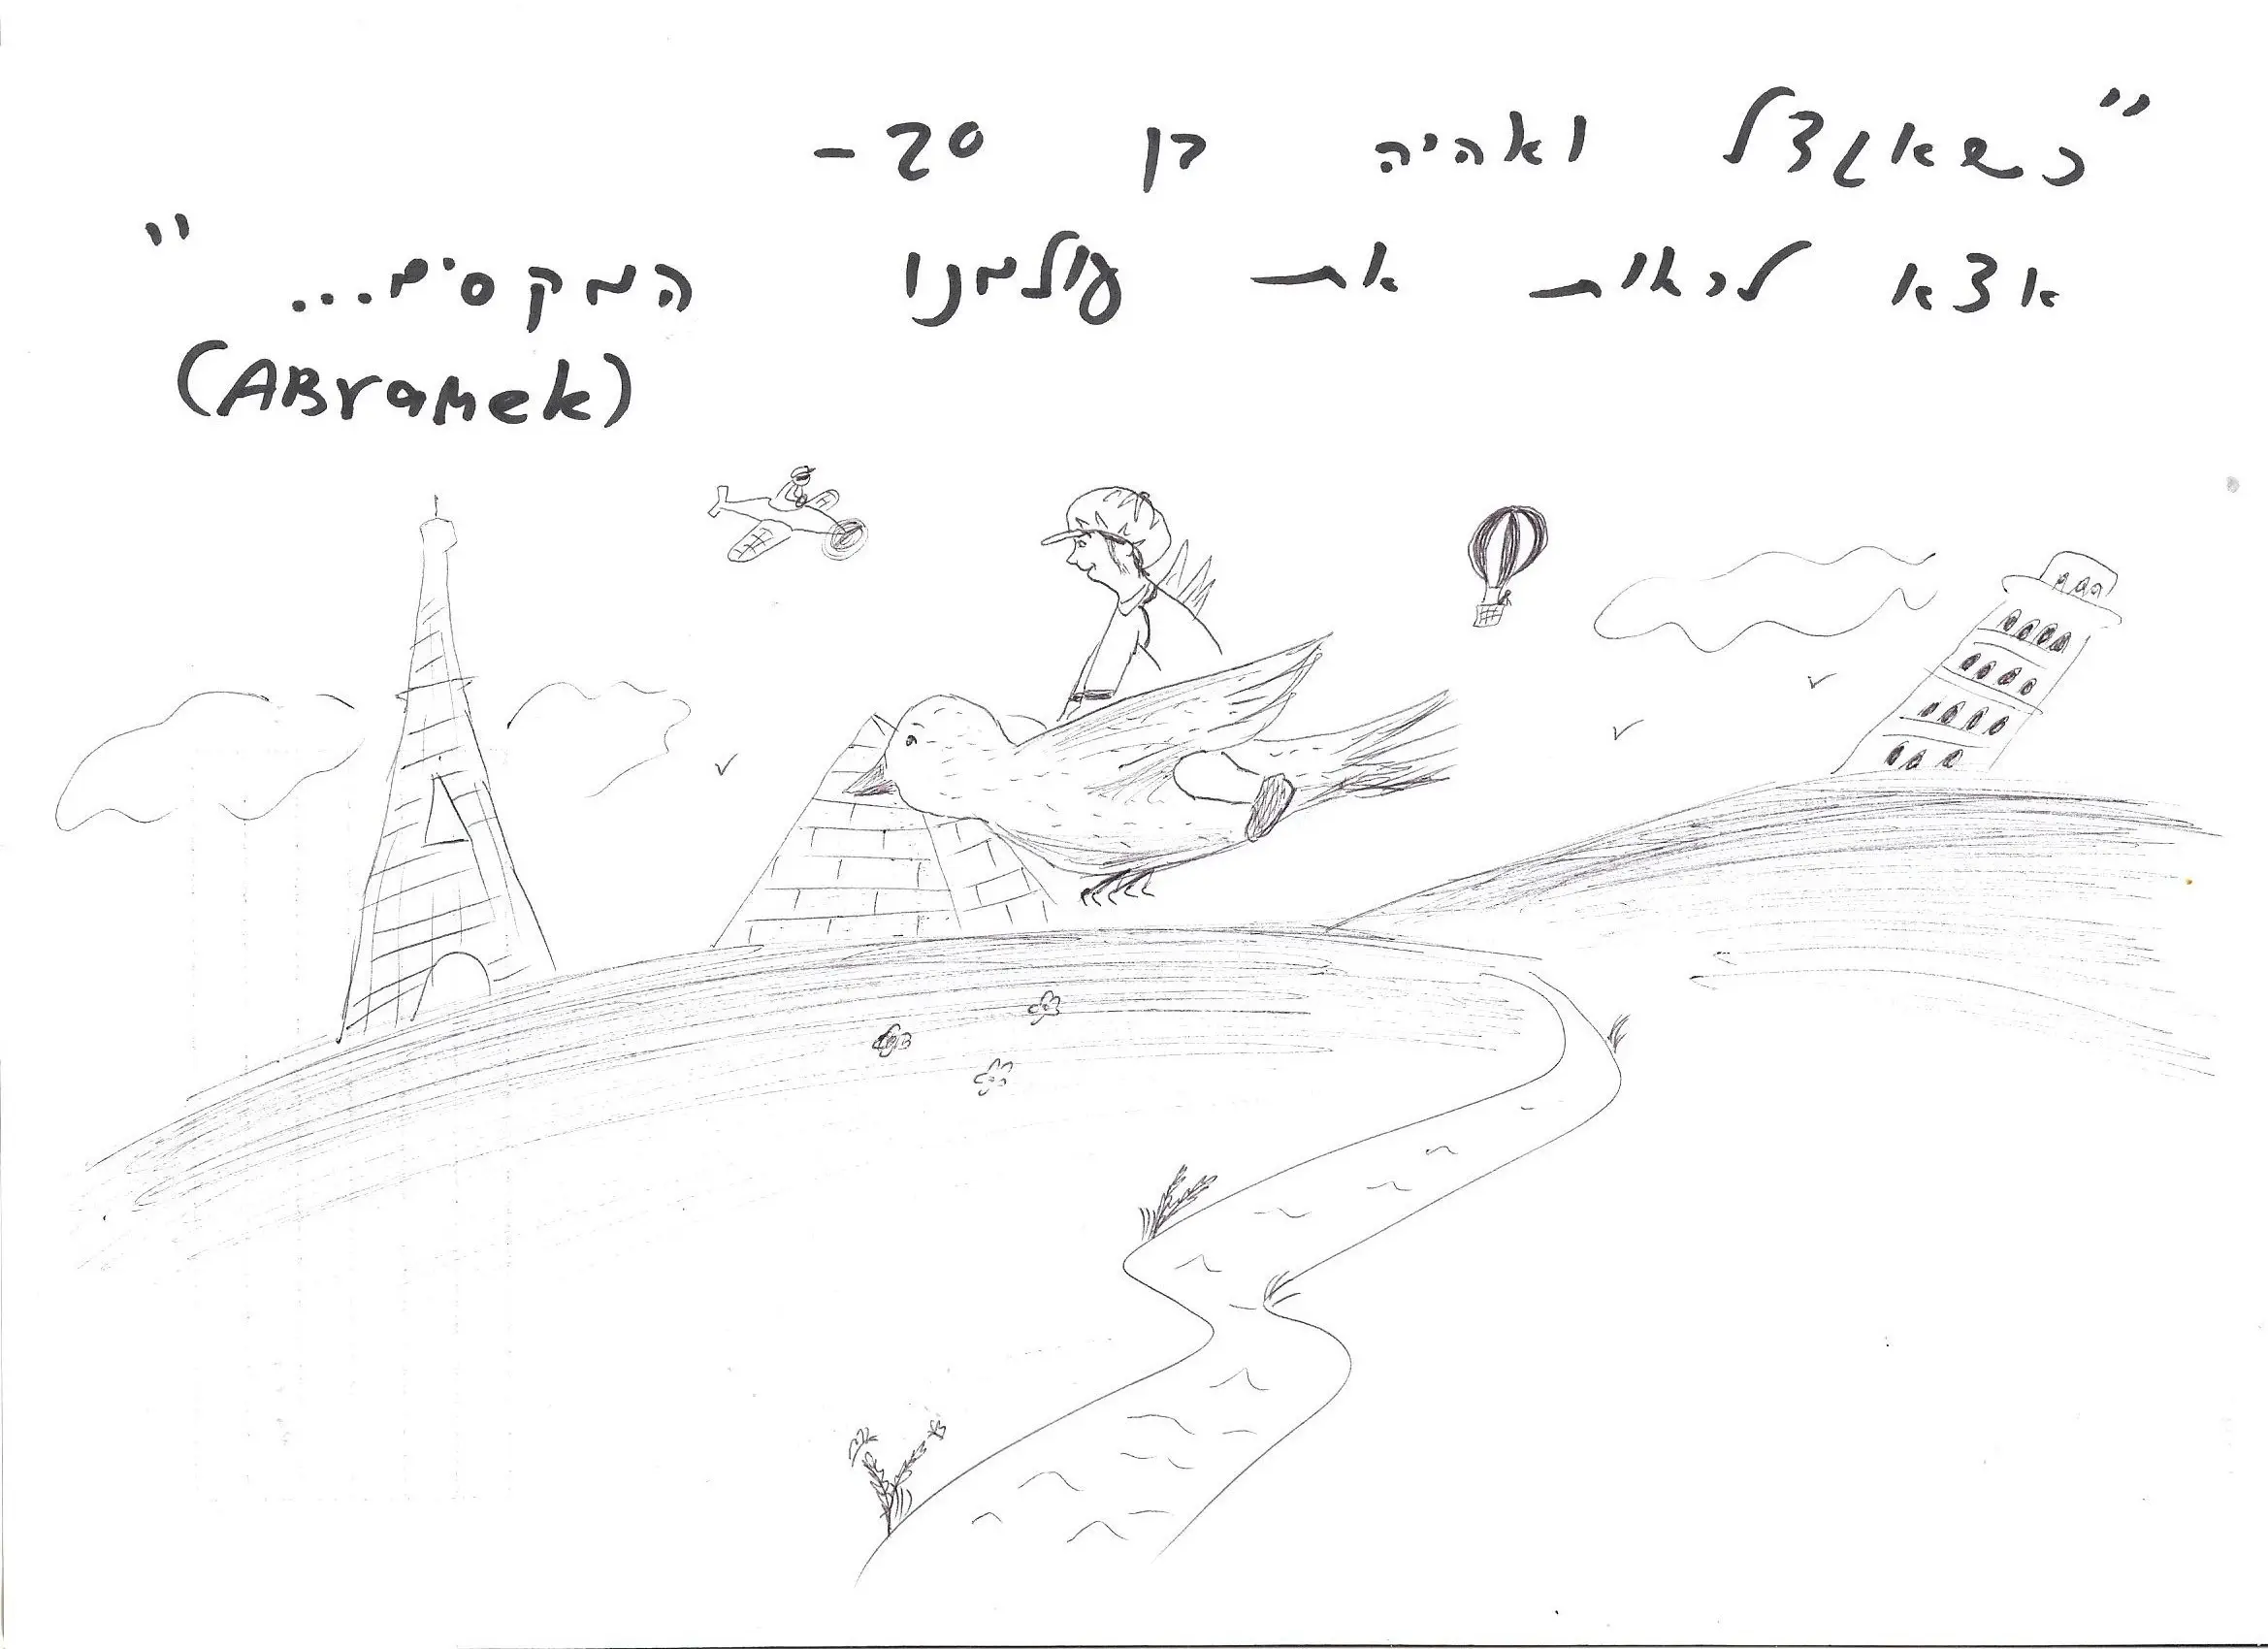 "כשאגדל ואהיה בן 20-
אצא לראות את עולמנו המקסים..."
(ABramek)